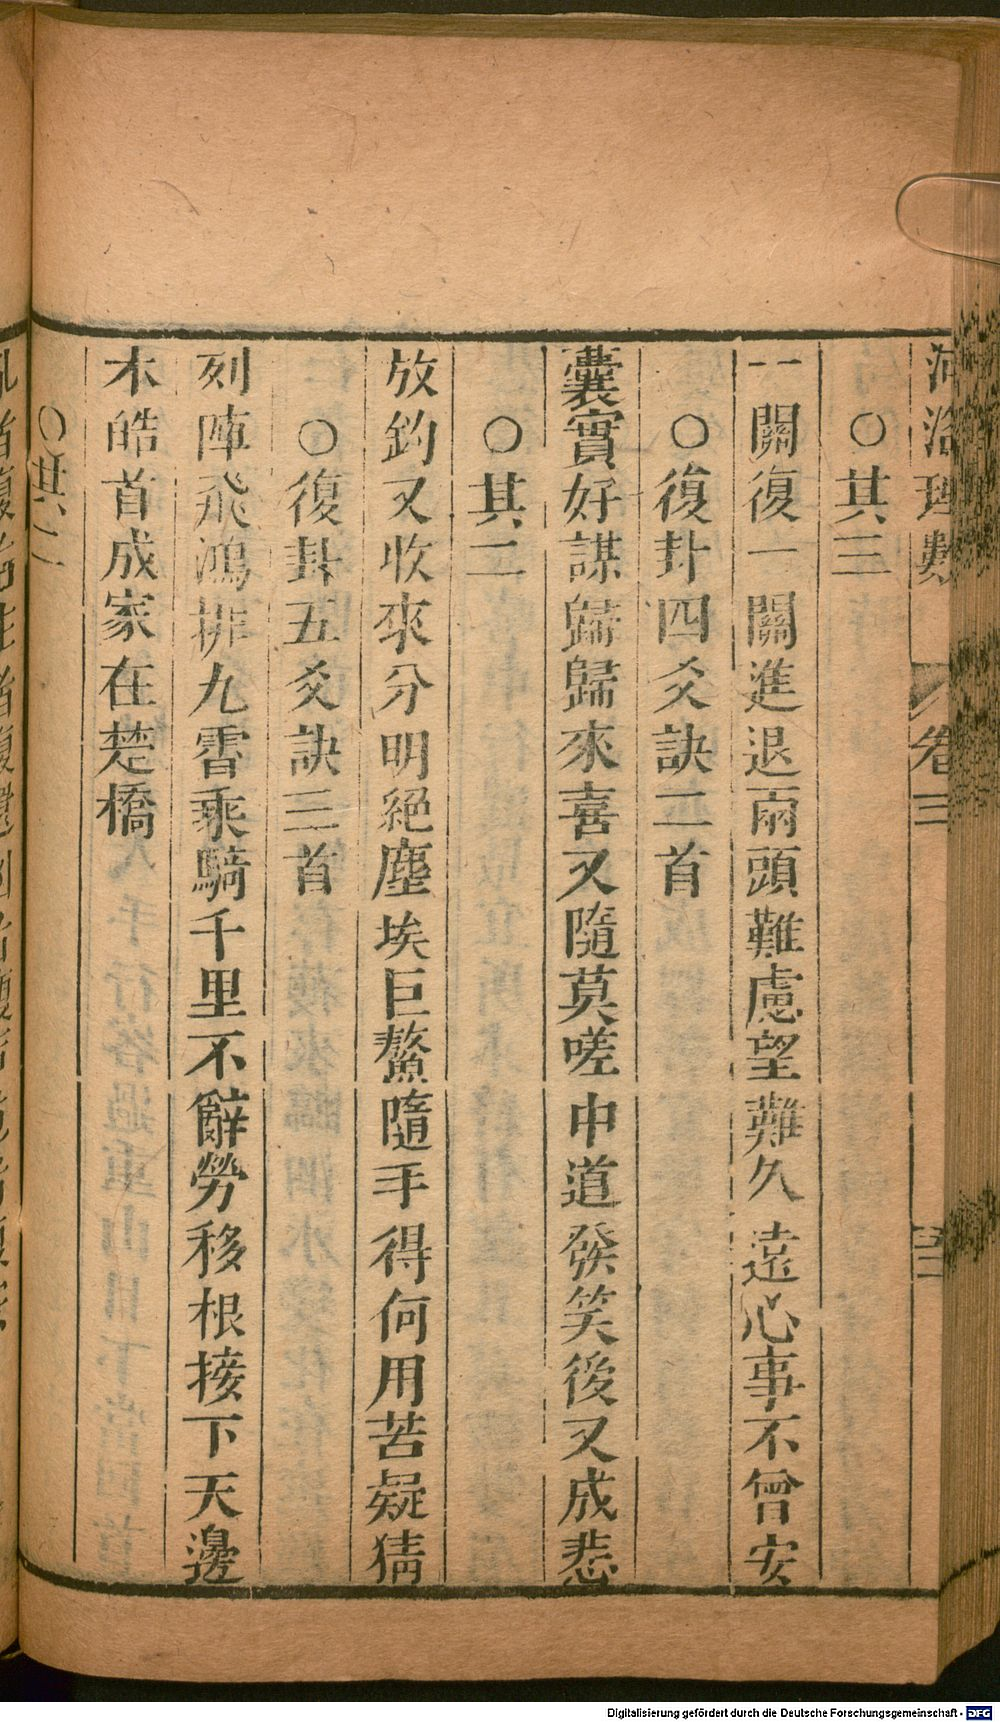 河洛理數 卷三 六二
○其三
一關復一關進退兩頭難慮望難久遠心事不曾安
○復卦四爻訣二首
囊實好謀歸歸來喜又隨莫嗟中道發笑後又成悲
○其二
放釣又收來分明絕塵埃巨鰲隨手得何用苦疑猜
○復卦五爻訣三首
列陣飛鴻排九霄乘騎千里不辭勞移根接下天邊
木皓首成家在楚橋
○其二
Digitalisierung gefördert durch die Deutsche Forschungsgemeinschaft - DFG